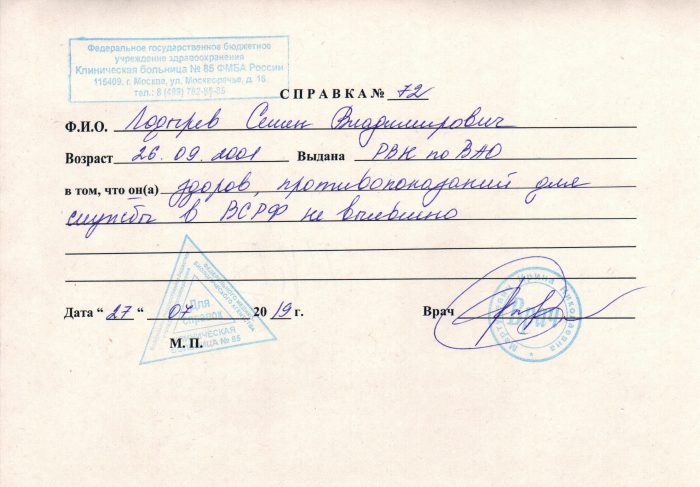 Федеральное государственное бюджетное
учреждение здравоохранения
Клиническая больница № 85 ФМБА России
115409, г. Москва, ул. Москворечье, д. 16
тел.: 8 (499) 782-85-85
СПРАВКА № 72
Ф.И.О. Лодырев Семен Владимирович
Возраст 26.09.2001 Выдана РВК по ВАО
в том, что он(а) здоров, противопоказаний для
службы в ВСРФ не выявлено
Для
справок
КЛИНИЧЕСКАЯ
БОЛЬНИЦА № 85
Дата “ 27 “ 07 20 19 г. Врач
Ирина Николаевна
Врач
М. П.